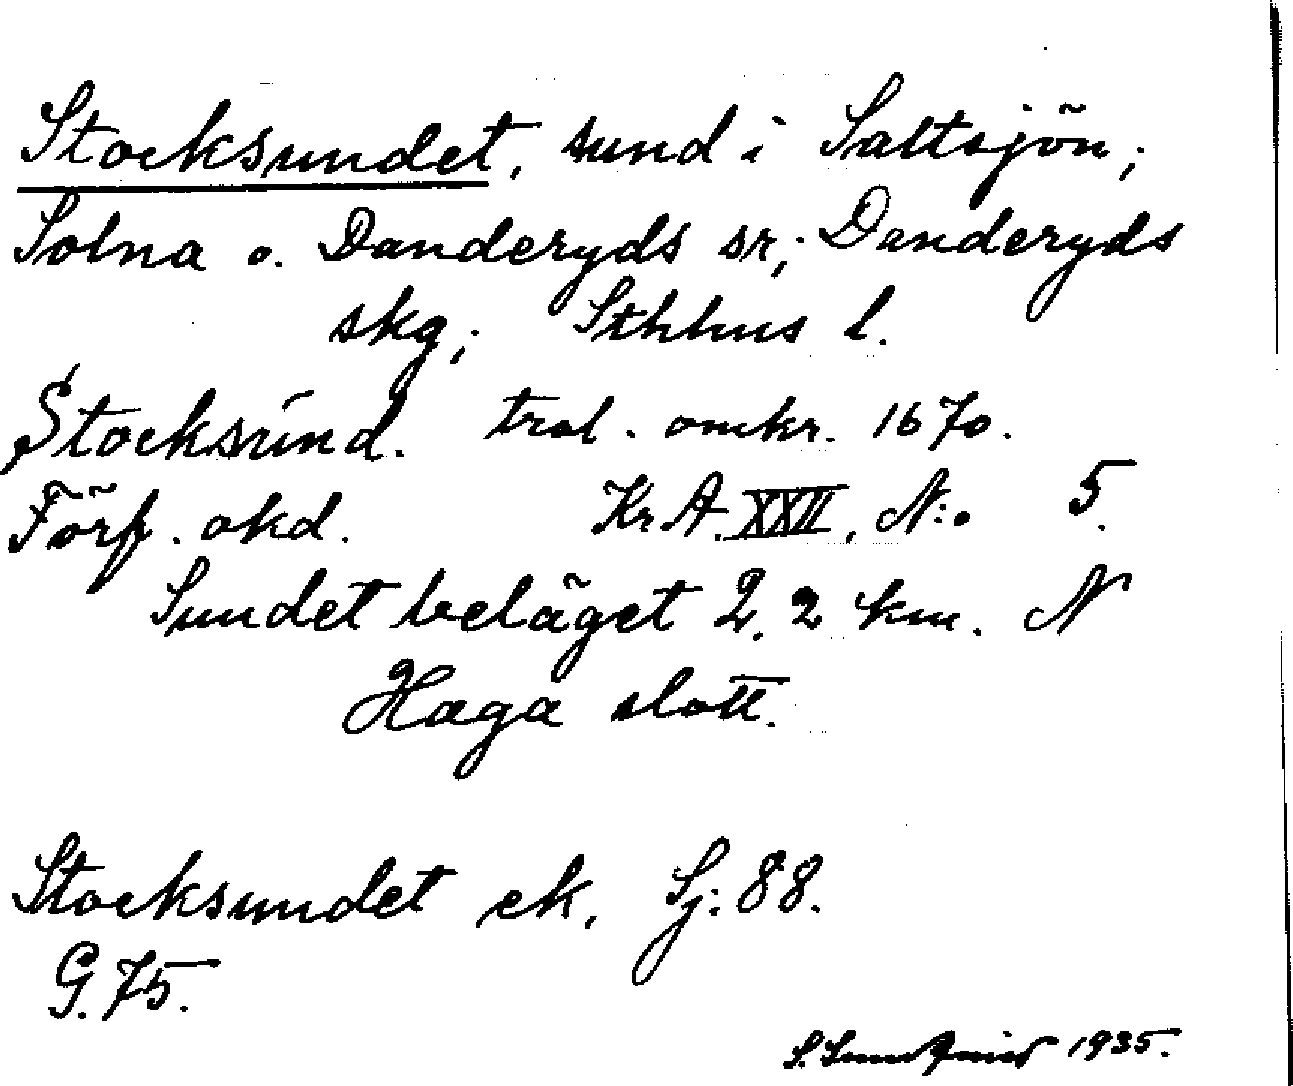 Stocksundet, sund i Saltsjön;
Solna o. Danderyds sr; Danderyds
skg; Sthlms l.
Stocksund. trol. omkr. 1670.
Förf. okd. Kr.A. XXII, N:o 5.
Sundet beläget 2,2 km. N
Haga slott.
Stocksundet ek. Sj: 88.
G. 75.
S. 1935.